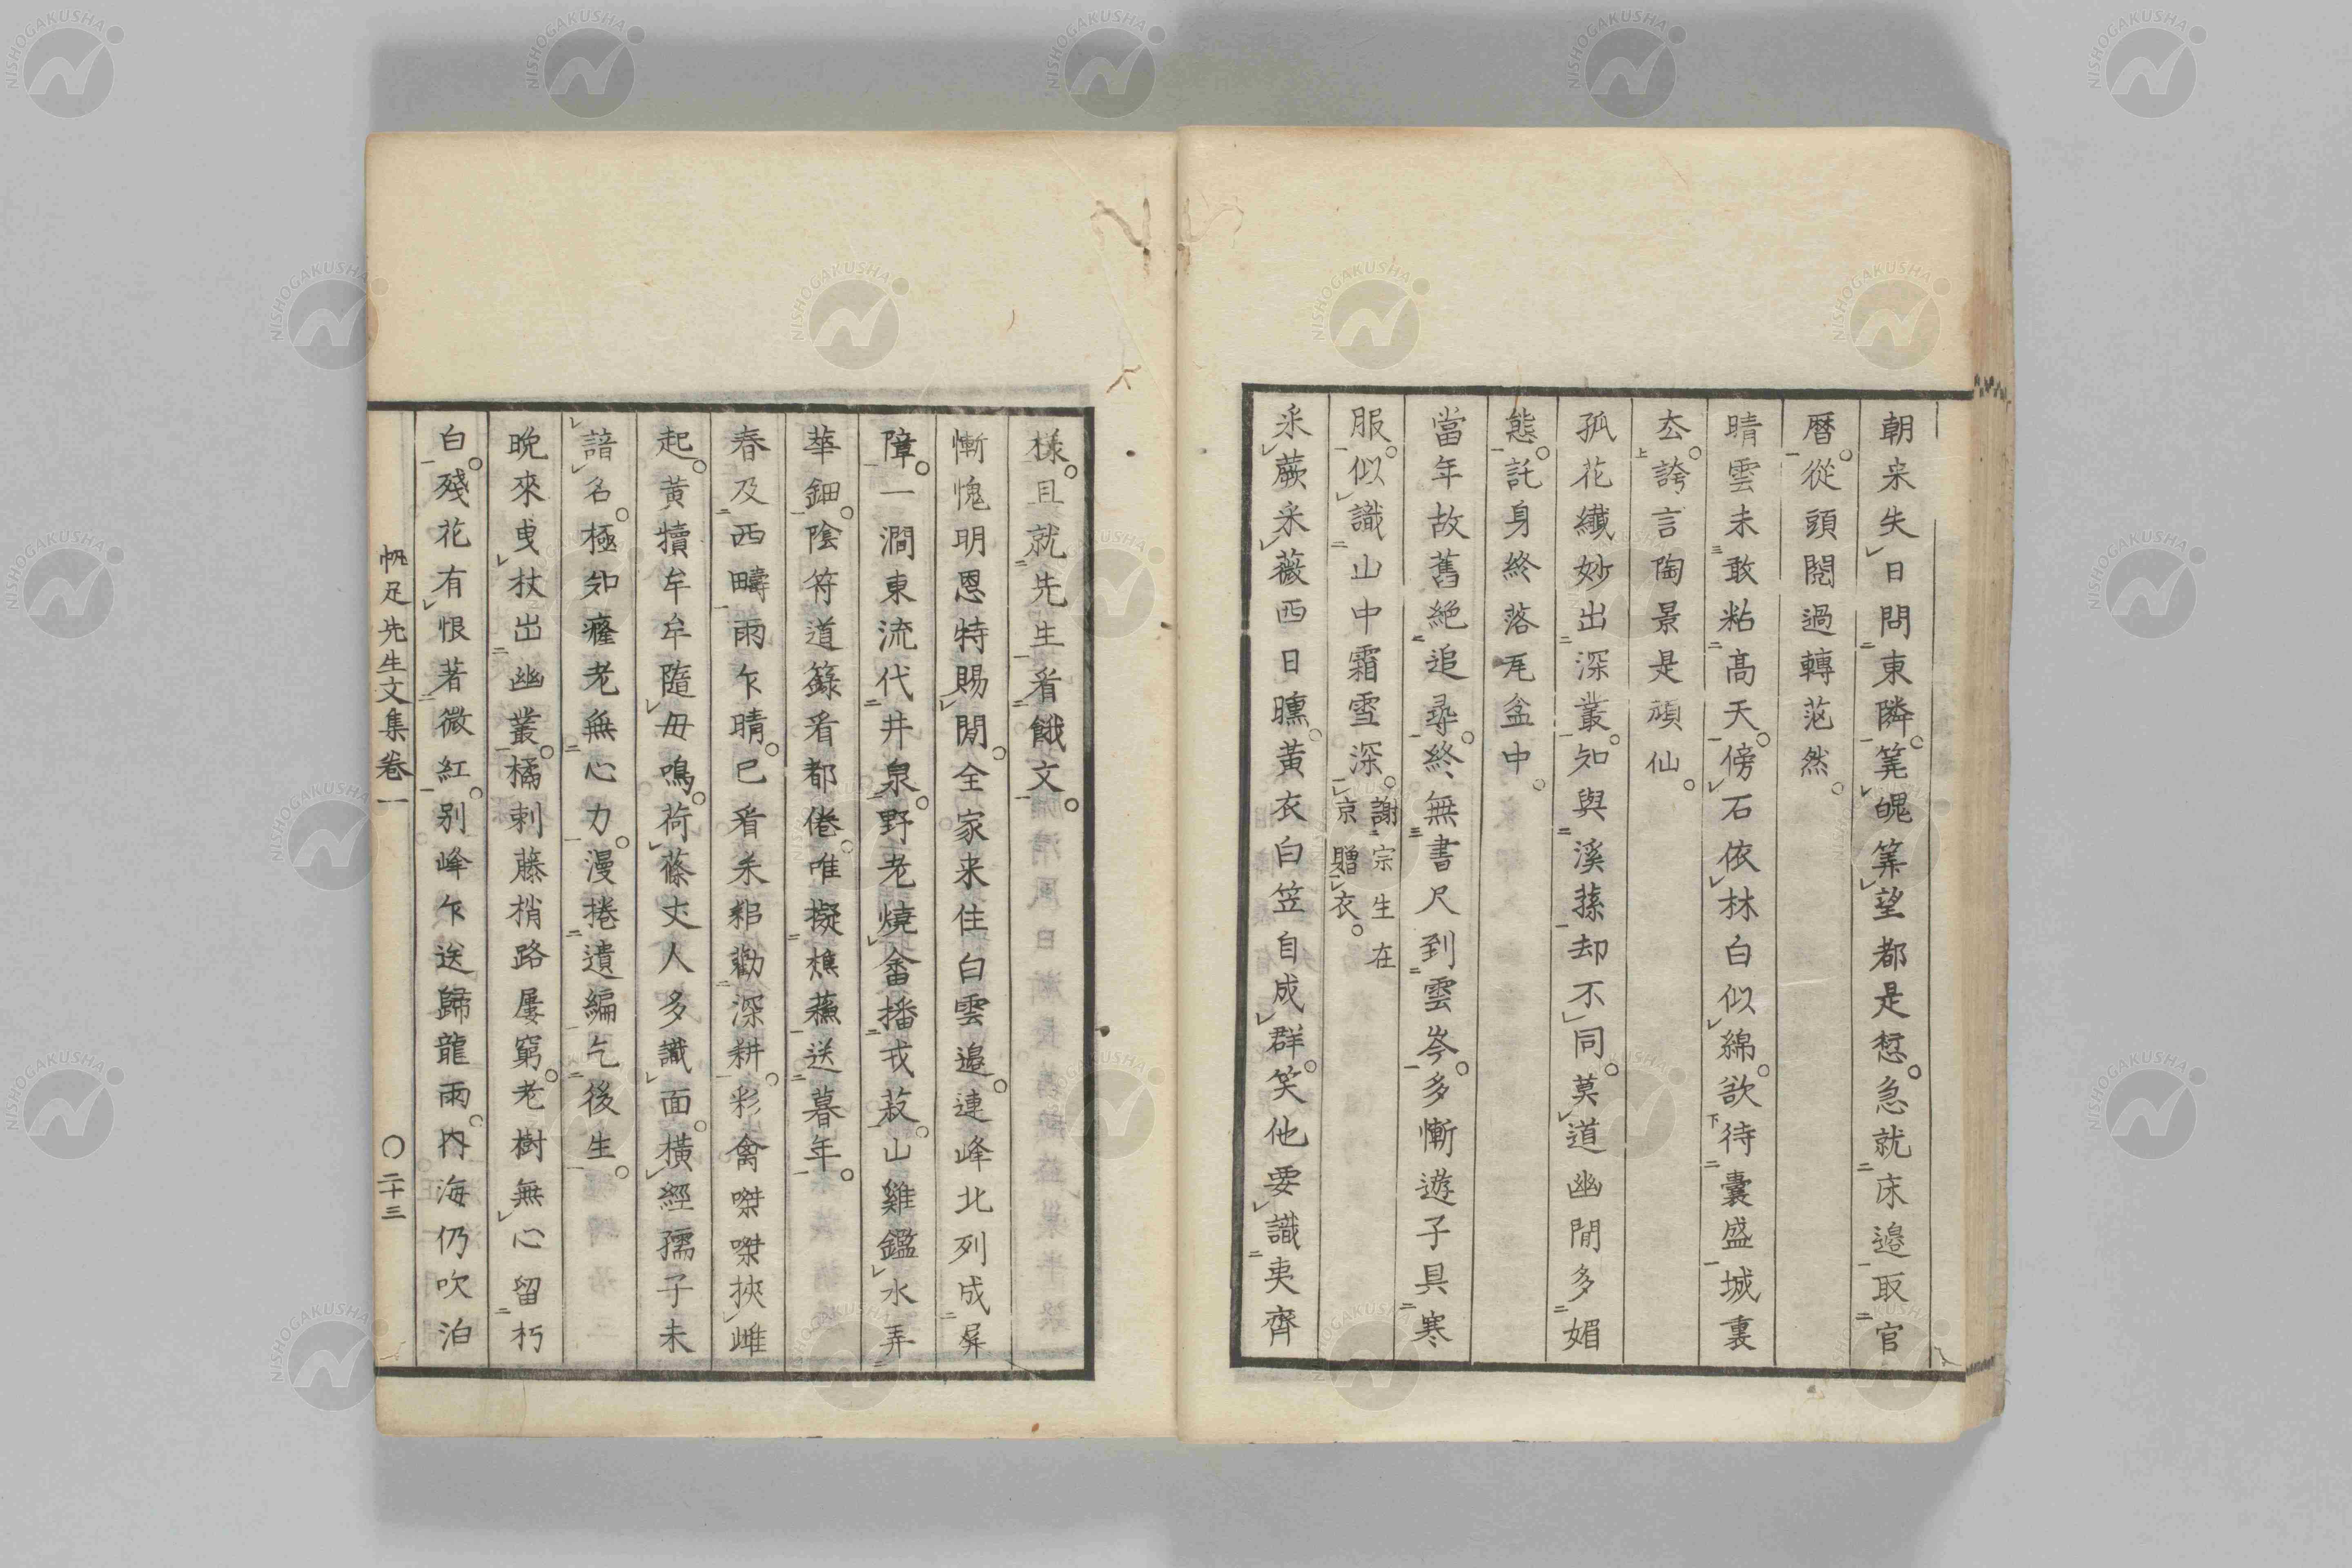 朝来失日問東隣。筭晦筭望都是愆。急就床邉取官
暦。從頭閱過轉茫然。
晴雲未敢粘高天。傍石依林白似綿。欲待囊盛城裏
去。誇言陶景是頑仙。
孤花纎妙出深叢。知與溪蓀却不同。莫道幽閒多媚
態。託身終落瓦盆中。
當年故舊絶追尋。終無書尺到雲岑。多慚遊子具寒
服。似識山中霜雪深。謝宗生在
京贈衣。
采蕨采薇西日曛。黃衣白笠自成群。笑他要識夷齊
樣。且就先生看餓文。
慚愧明恩特賜閒。全家来住白雲邉。連峰北列成屏
障。一澗東流代井泉。野老燒畲播戎菽。山雞鑑水弄
華鈿。陰符道籙看都倦。唯擬樵蘓送暮年。
春及西疇雨乍晴。已看禾稆勸深耕。彩禽桀桀挾雌
起。黃犢牟牟隨母鳴。荷蓧丈人多識面。橫經孺子未
諳名。極知癃老無心力。漫捲遺編乞後生。
晩來曳杖出幽叢。橘刺藤梢路屢窮。老樹無心留朽
白。殘花有恨著微紅。別峰乍送歸龍雨。内海仍吹泊
帆足先生文集卷一
〇二十三
NISHOGAKUSHA